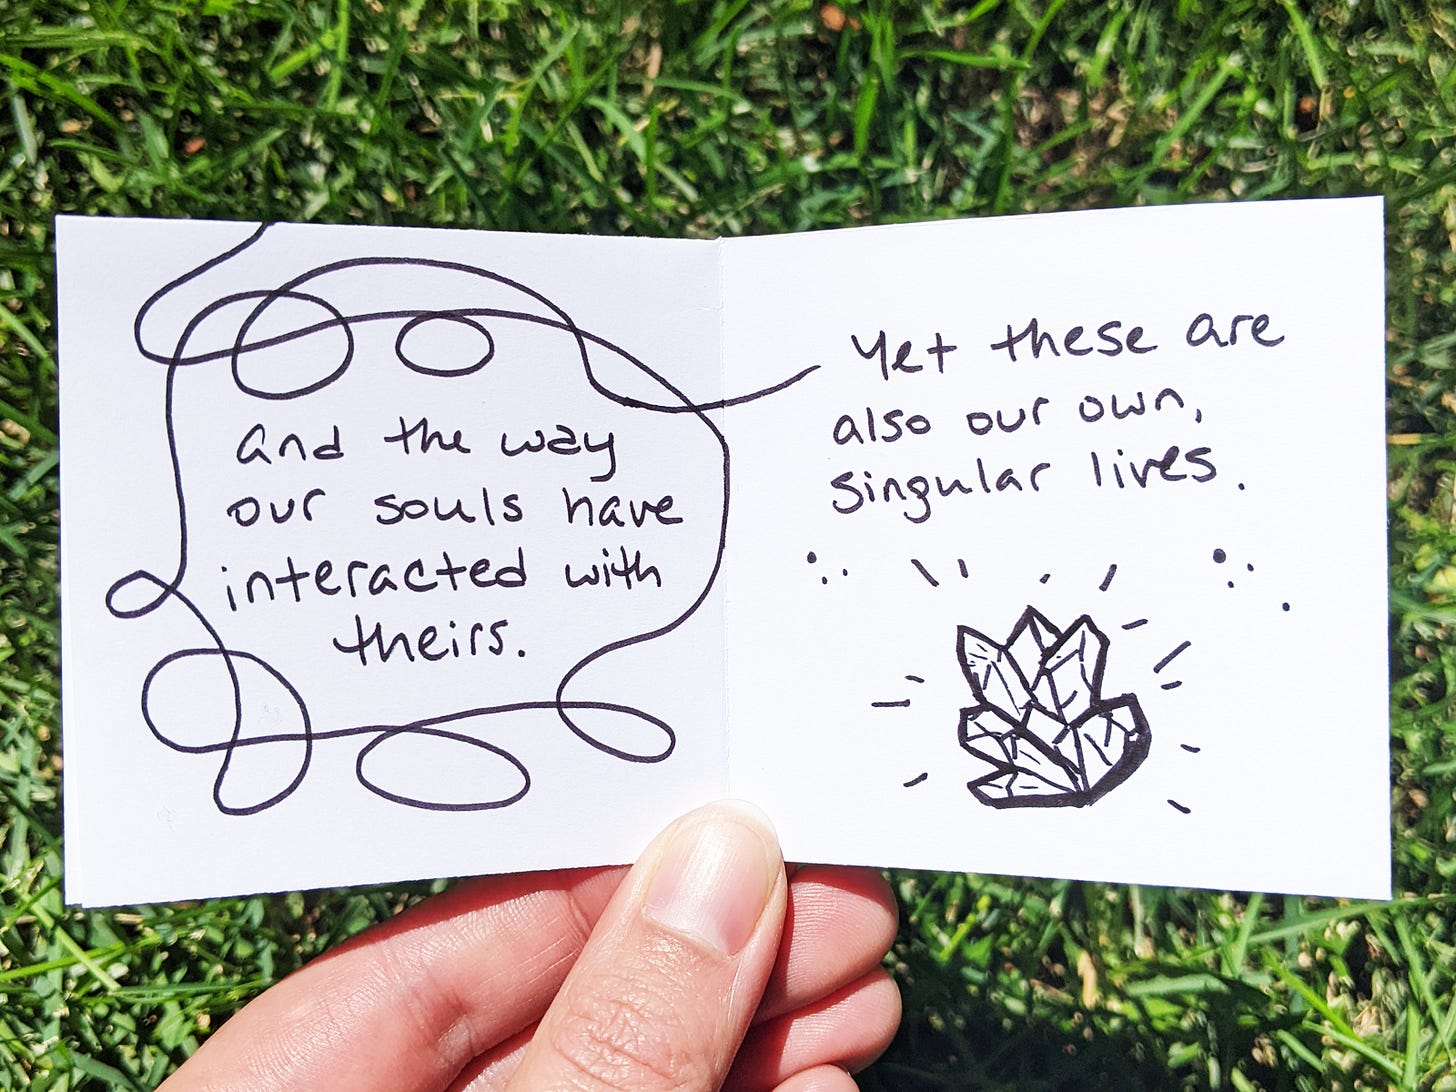 And the way
our souls have
interacted with
theirs.
Yet these are
also our own,
singular lives.